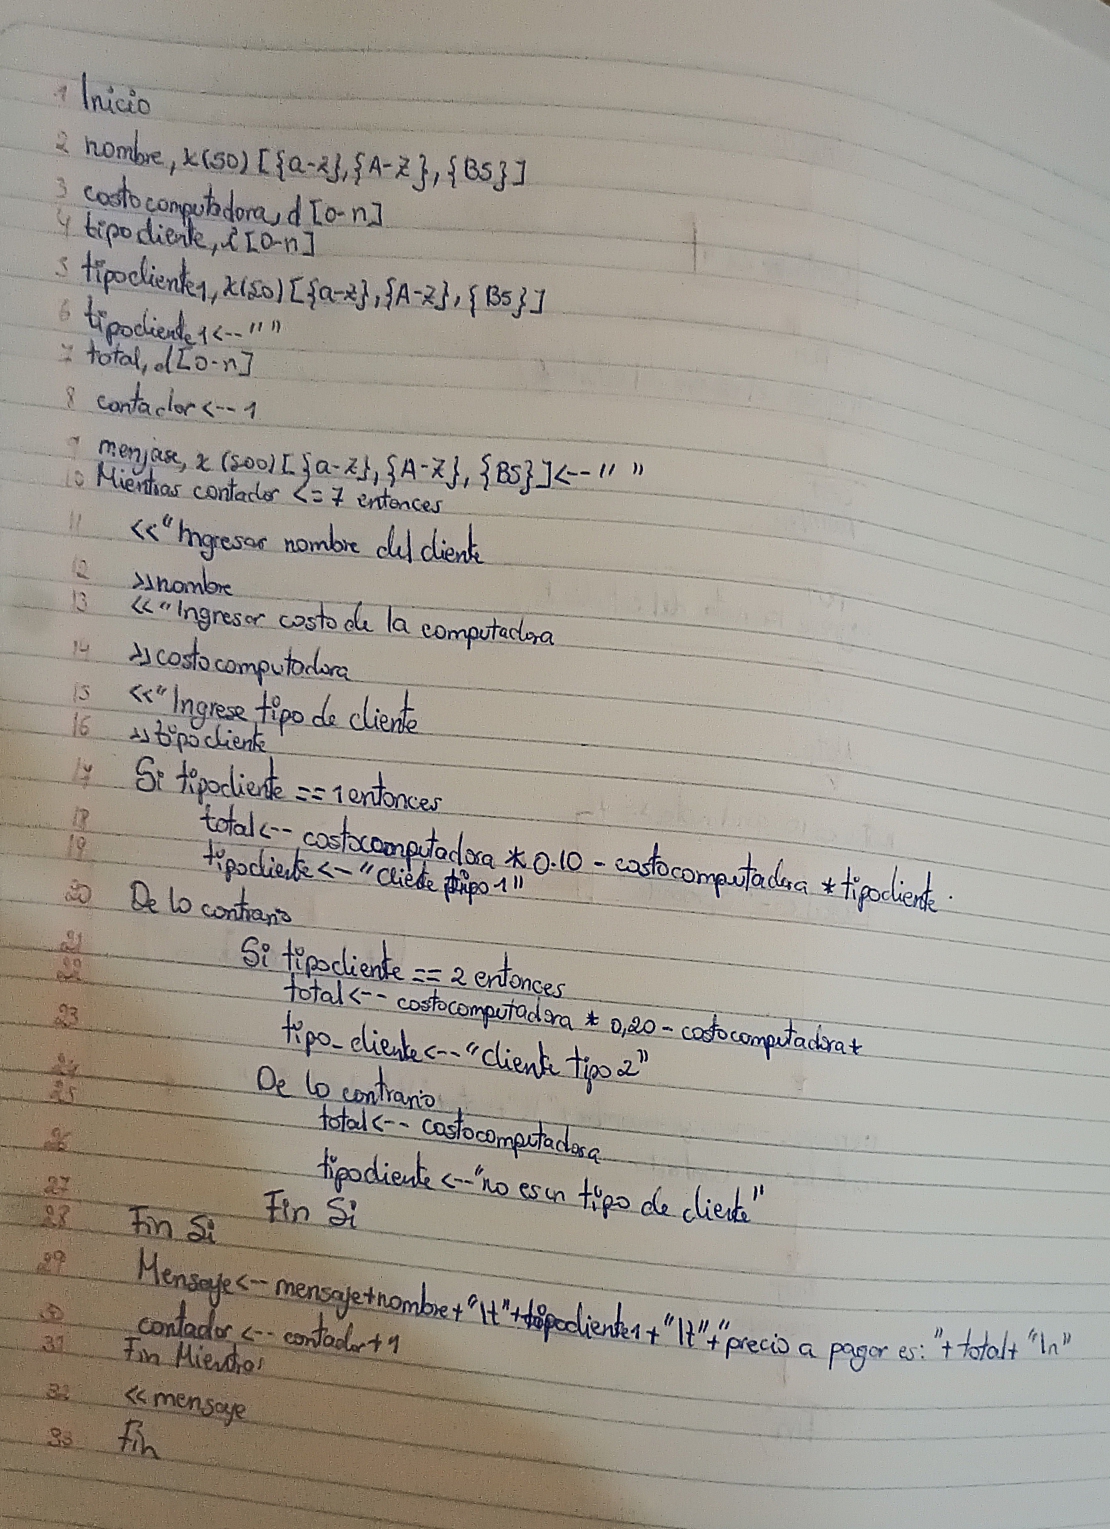 1 Inicio
2 nombre, x(50) [{a-z},{A-Z},{BS}]
3 costocomputadora, d [0-n]
4 tipocliente, i [0-n]
5 tipocliente1, x(50) [{a-z},{A-Z},{BS}]
6 tipocliente1<--" "
7 total, d[0-n]
8 contador<--1
9 menjase, x (500) [{a-z},{A-Z},{BS}]<--" "
10 Mientras contador <=7 entonces
11 <<"Ingresar nombre del cliente
12 >>nombre
13 <<"Ingresar costo de la computadora
14 >>costocomputadora
15 <<"Ingrese tipo de cliente
16 >>tipocliente
17 Si tipocliente ==1 entonces
18 total<-- costocomputadora * 0.10 - costocomputadora * tipocliente.
19 tipocliente<--"cliete tipo 1"
20 De lo contrario
21 Si tipocliente == 2 entonces
22 total<-- costocomputadora * 0,20 - costocomputadora+
23 tipo_cliente<--"cliente tipo 2"
24 De lo contrario
25 total<-- costocomputadora
26 tipocliente <--"no es un tipo de cliente"
27 Fin Si
28 Fin Si
29 Mensaje<-- mensaje+nombre+"\t"+tipocliente1+"\t"+"precio a pagar es: "+total+"\n"
30 contador <-- contador+1
31 Fin Mientras
32 <<mensaje
33 Fin